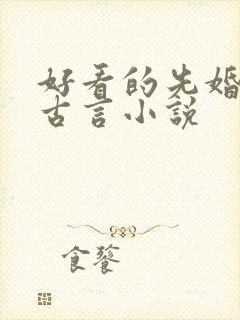 好看的先婚
古言小说
食饕